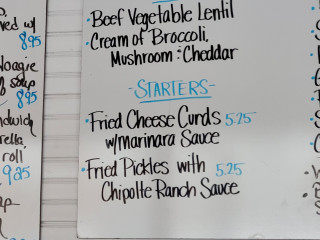 ved w/
8.95
Noagie
soup
8.95
ndwich
rella
roll
9.25
up
• Beef Vegetable Lentil
• Cream of Broccoli,
Mushroom : Cheddar
- STARTERS -
• Fried Cheese Curds 5.25
w/marinara Sauce
• Fried Pickles with 5.25
Chipolte Ranch Sauce